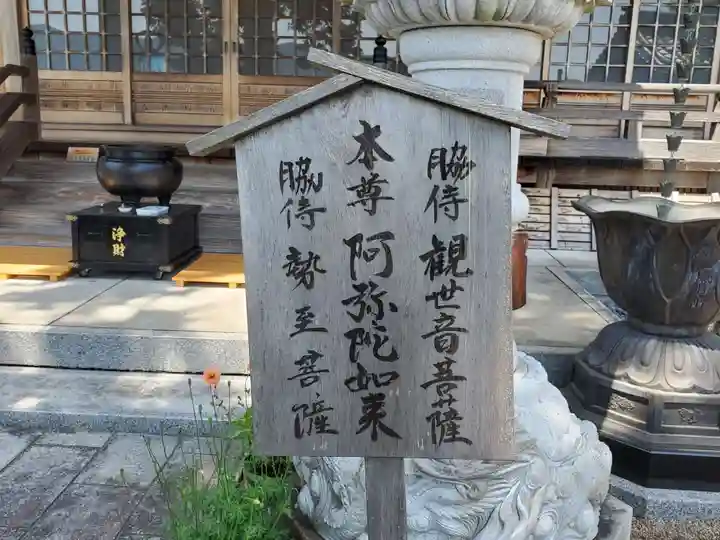 脇侍 観世音菩薩
本尊 阿弥陀如来
脇侍 勢至菩薩
浄財